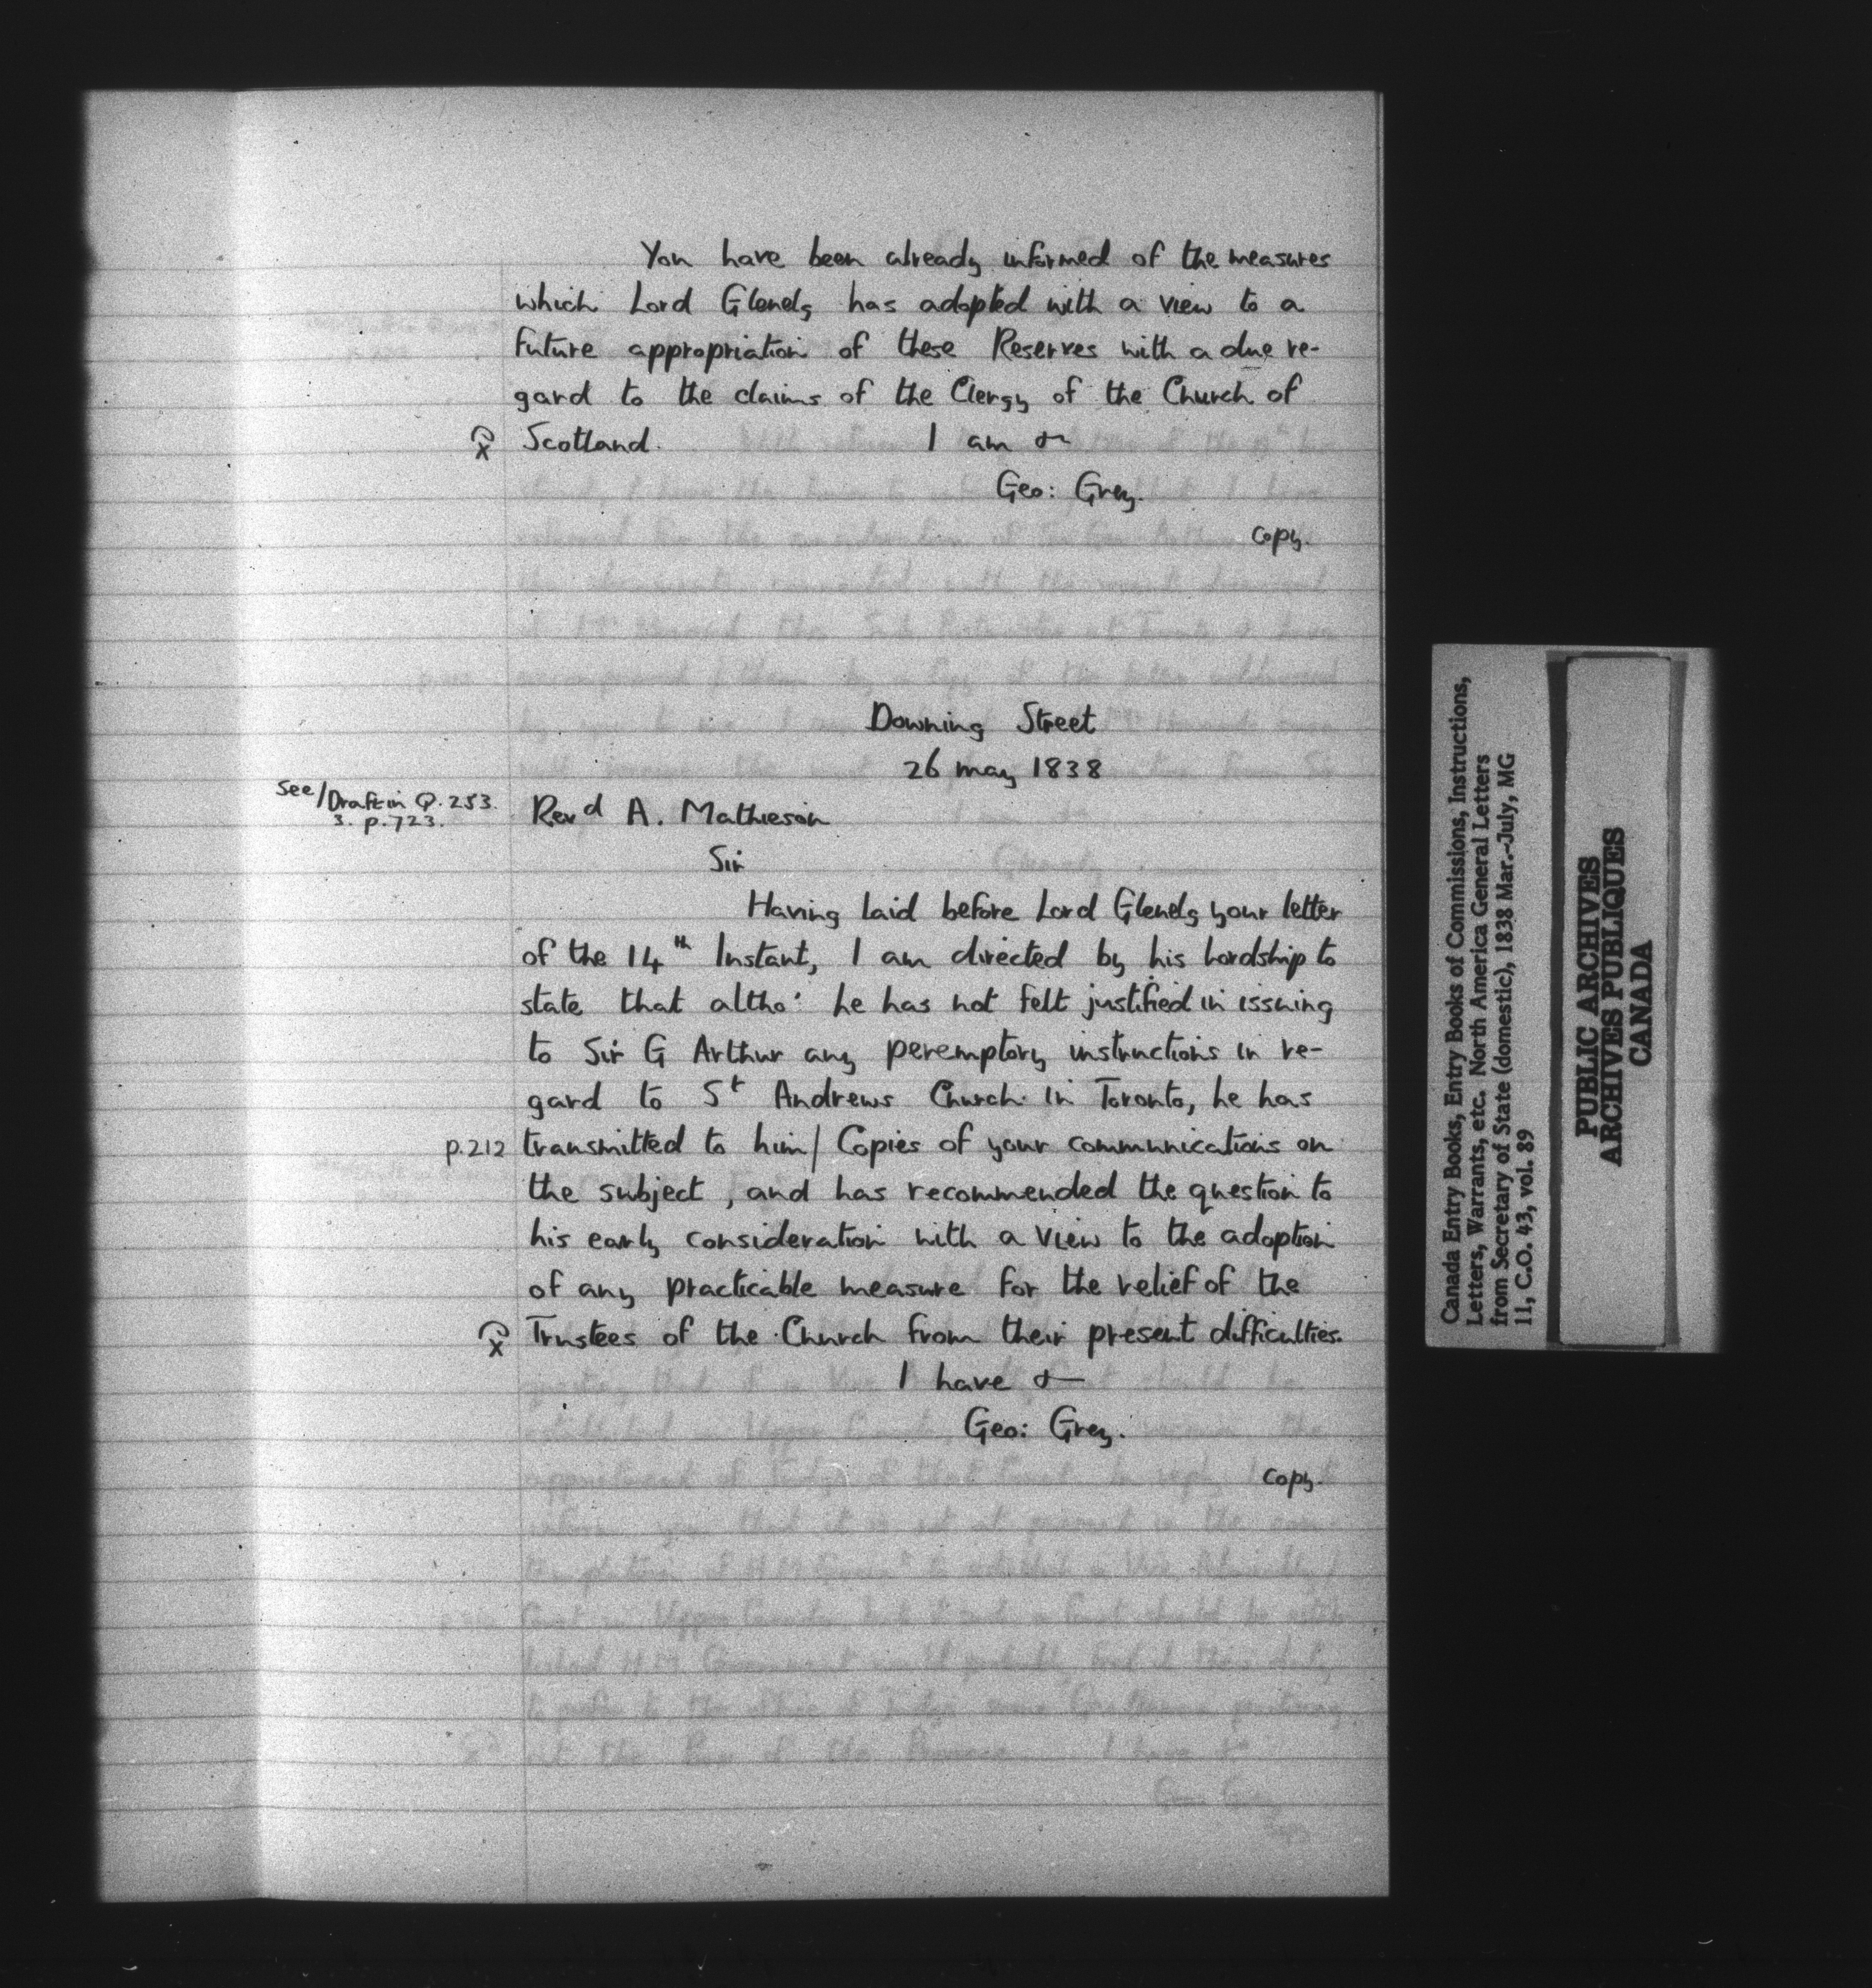 You have been already informed of the measures
which Lord Glenelg has adopted with a view to a
future appropriation of these Reserves with a due re-
gard to the claims of the Clergy of the Church of
x Scotland. I am &
Geo: Grey.
copy.
Downing Street
26 may 1838
See/Draft in Q.253.
3. p.723.
Revd A. Mathieson
Sir
Having laid before Lord Glenelg your letter
of the 14th Instant, I am directed by his Lordship to
state that altho' he has not felt justified in issuing
to Sir G Arthur any peremptory instructions in re-
gard to St Andrews Church in Toronto, he has
p.212 transmitted to him/ Copies of your communications on
the subject, and has recommended the question to
his early consideration with a view to the adoption
of any practicable measure for the relief of the
x Trustees of the Church from their present difficulties.
I have &
Geo: Grey.
copy.
Canada Entry Books, Entry Books of Commissions, Instructions,
Letters, Warrants, etc. North America General Letters
from Secretary of State (domestic), 1838 Mar.-July, MG
11, C.O. 43, vol. 89
PUBLIC ARCHIVES
ARCHIVES PUBLIQUES
CANADA